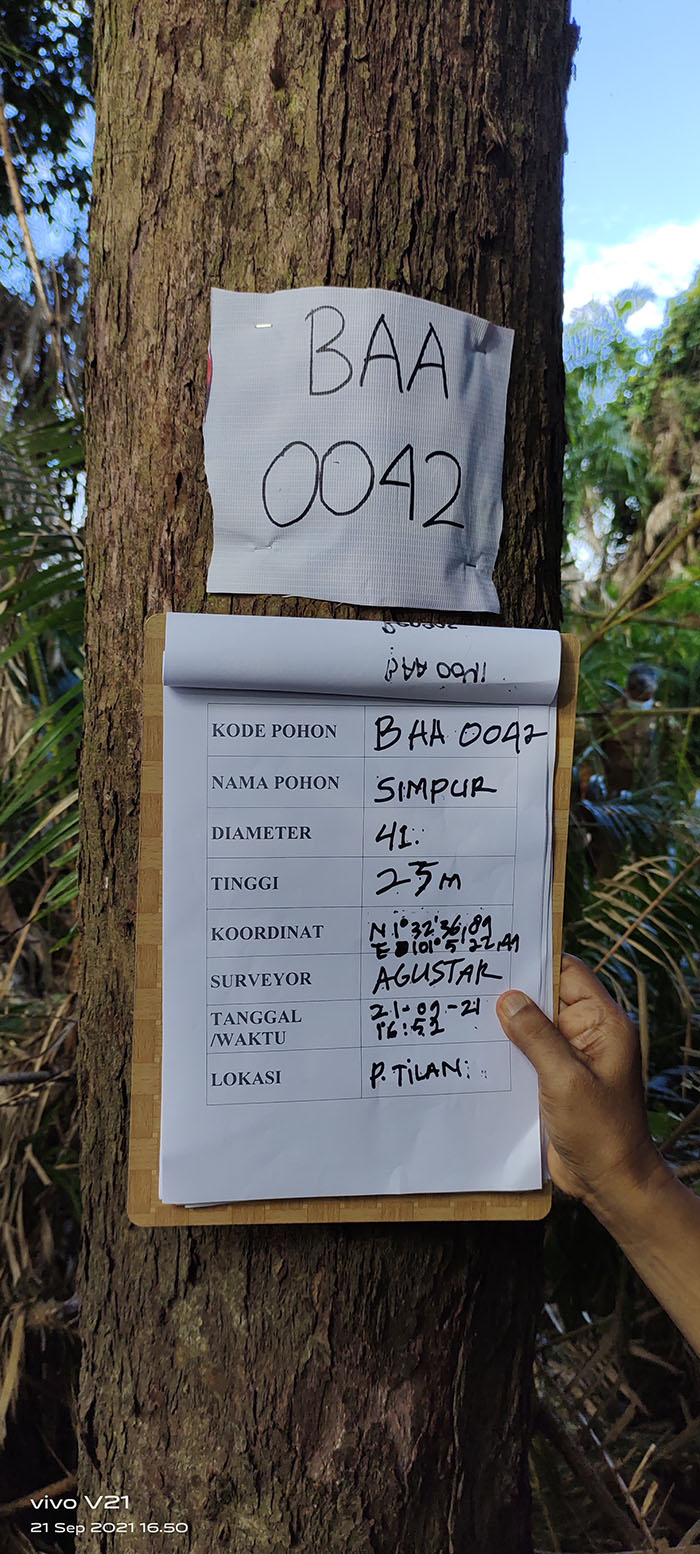 BAA
0042
BAA 0041
KODE POHON BAA 0042
NAMA POHON SIMPUR
DIAMETER 41.
TINGGI 25 m
KOORDINAT N 1° 32' 36,89
E 101° 5' 22,49
SURVEYOR AGUSTAR
TANGGAL 21-09-21
/WAKTU 16:52
LOKASI P. TILAN
vivo V21
21 Sep 2021 16.50